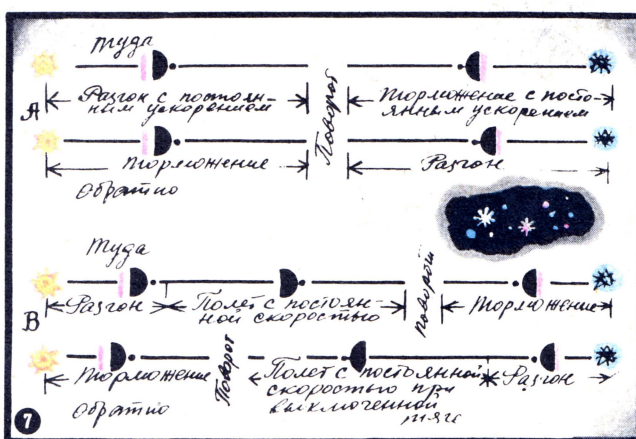 Туда
А
Разгон с постоян-
ным ускорением
Поворот
Торможение с посто-
янным ускорением
Торможение
Разгон
Обратно
Туда
В
Разгон
Полёт с постоян-
ной скоростью
Поворот
Торможение
Торможение
Поворот
Полёт с постоянной
скоростью при
выключенной
тяге
Разгон
Обратно
7